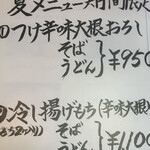 夏メニュー期間限定
のつけ辛味大根おろし
そば
うどん}¥950
の冷し揚げもち(辛味大根
そば
うどん}¥1,100